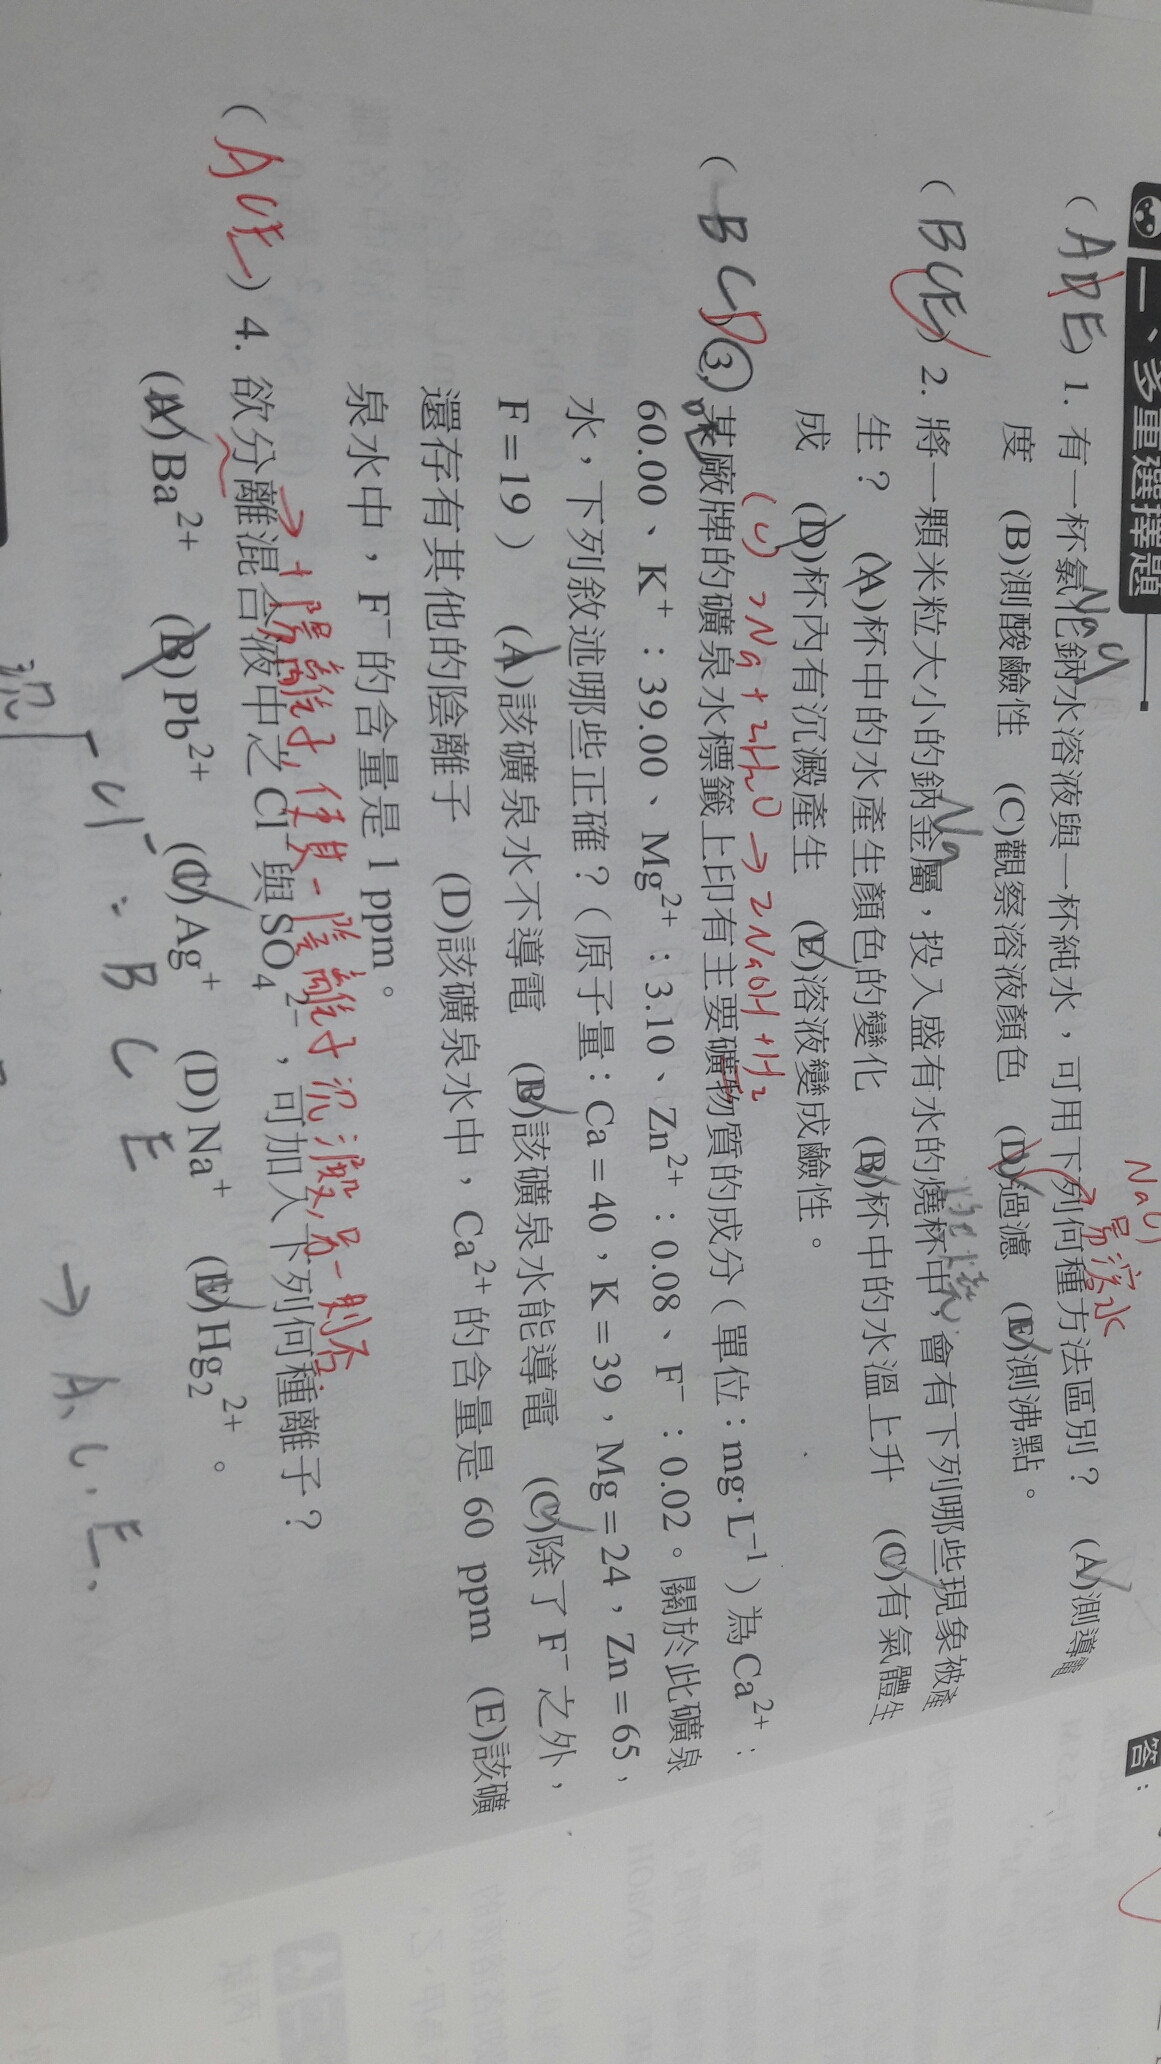 一、多重選擇題
答：
NaCl
易溶水
(ADE) 1. 有一杯氯化鈉水溶液與一杯純水，可用下列何種方法區別？ (A)測導電
NaCl
度 (B)測酸鹼性 (C)觀察溶液顏色 (D)過濾 (E)測沸點。
(BCE) 2. 將一顆米粒大小的鈉金屬，投入盛有水的燒杯中，會有下列哪些現象被產
Na
生？ (A)杯中的水產生顏色的變化 (B)杯中的水溫上升 (C)有氣體生
成 (D)杯內有沉澱產生 (E)溶液變成鹼性。
(C) 2Na + 2H2O → 2NaOH + H2
(BCD) 3. 某廠牌的礦泉水標籤上印有主要礦物質的成分（單位：mg·L⁻¹）為Ca²⁺：
60.00、K⁺：39.00、Mg²⁺：3.10、Zn²⁺：0.08、F⁻：0.02。關於此礦泉
水，下列敘述哪些正確？（原子量：Ca＝40，K＝39，Mg＝24，Zn＝65，
F＝19） (A)該礦泉水不導電 (B)該礦泉水能導電 (C)除了F⁻之外，
還存有其他的陰離子 (D)該礦泉水中，Ca²⁺的含量是60 ppm (E)該礦
泉水中，F⁻的含量是1 ppm。
→ + 陽離子，使其一陰離子沉澱，另一則否.
(ACE) 4. 欲分離混合液中之Cl⁻與SO₄²⁻，可加入下列何種離子？
(A)Ba²⁺ (B)Pb²⁺ (C)Ag⁺ (D)Na⁺ (E)Hg₂²⁺。
沉 Cl⁻：B C E
→ A、C、E.